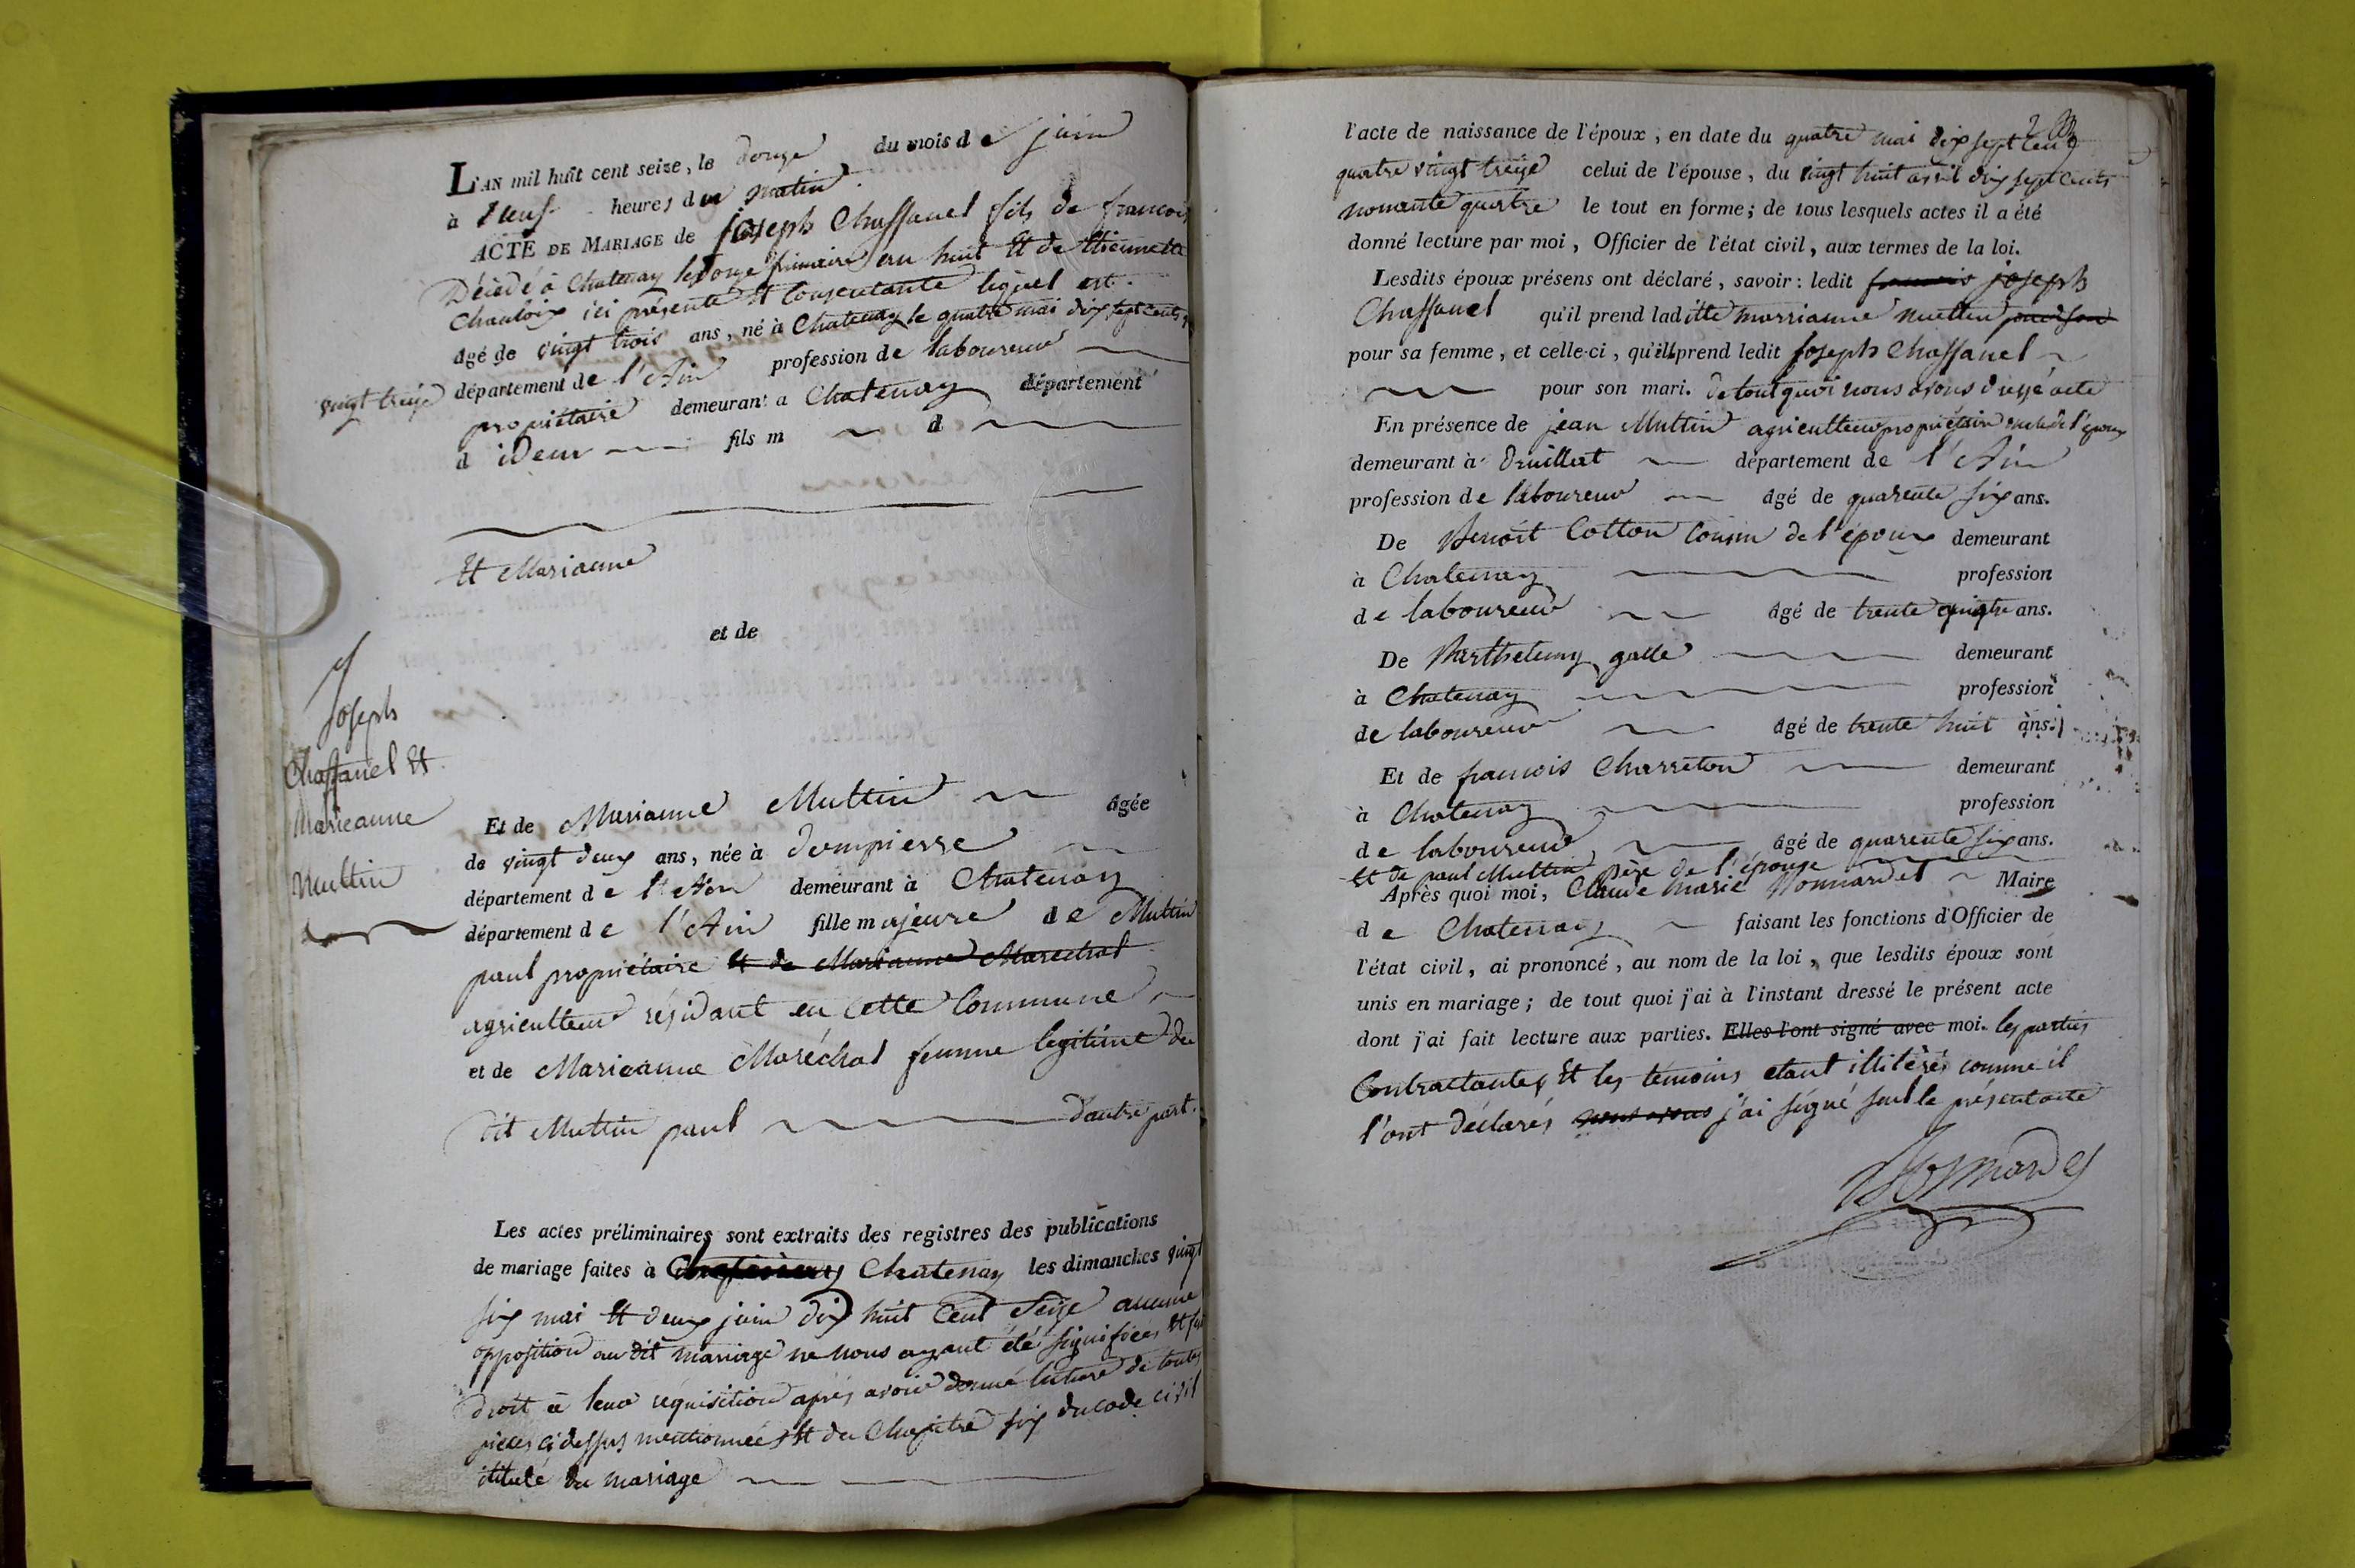 L'AN mil huit cent seize, le douze du mois de juin
à neuf heures du matin
ACTE DE MARIAGE de joseph Chaffanel fils de francois
Décédé à Chatenay le douze frimaire an huit Et de Etiennette
Chauloix ici présente Et Consentante lequel est
âgé de vingt trois ans, né à Chatenay le quatre mai dix sept cents
vingt treize
département de l'Ain profession de laboureur
propriétaire demeurant a Chatenay département
d idem fils m d
Et Marianne
et de
Joseph
Chaffanel Et
Marieanne
Muttin
Et de Marianne Muttin âgée
de vingt deux ans, née à dompierre
département de l'Ain demeurant à Chatenay
département de l'Ain fille majeure de Muttin
paul propriétaire et de Marianne Marechal
agriculteur résidant en cette Commune
et de Marieanne Maréchal femme legitime du
dit Muttin paul d'autre part.
Les actes préliminaires sont extraits des registres des publications
de mariage faites à Chatenay les dimanches vingt
six mai Et deux juin dix huit Cent Seize aucune
opposition au dit mariage ne nous ayant été signifiées Et
droit à leur réquisition après avoir donné lecture de toutes
pièces ci dessus mentionnées Et du Chapitre six du code civil
ititulé du mariage
l'acte de naissance de l'époux, en date du quatre mai dix sept cent
quatre vingt treize celui de l'épouse, du vingt huit avril dix sept cents
nonante quatre le tout en forme; de tous lesquels actes il a été
donné lecture par moi, Officier de l'état civil, aux termes de la loi.
Lesdits époux présens ont déclaré, savoir: ledit francois joseph
Chaffanel qu'il prend laditte marrianne muttin
pour sa femme, et celle-ci, qu'ellprend ledit joseph Chaffanel
pour son mari. de tout quoi nous avons dressé acte
En présence de jean Muttin agriculteur propriétaire oncle de l'epoux
demeurant à druillat département de l'Ain
profession de laboureur âgé de quarente six ans.
De Benoit Cotton Cousin de l'époux demeurant
à Chatenay profession
de laboureur âgé de trente quatre ans.
De Barthelemy galle demeurant
à Chatenay profession
de laboureur âgé de trente huit ans.
Et de francois Charreton demeurant
à Chatenay profession
de laboureur âgé de quarente six ans.
Et de paul Muttin père de l'épouse
Après quoi moi, Claude Marie Monnardet Maire
de Chatenay faisant les fonctions d'Officier de
l'état civil, ai prononcé, au nom de la loi, que lesdits époux sont
unis en mariage; de tout quoi j'ai à l'instant dressé le présent acte
dont j'ai fait lecture aux parties. Elles l'ont signé avec moi. les parties
Contractantes Et les témoins etant illitérés comme il
l'ont déclarés nous avons j'ai signé seul le présent acte